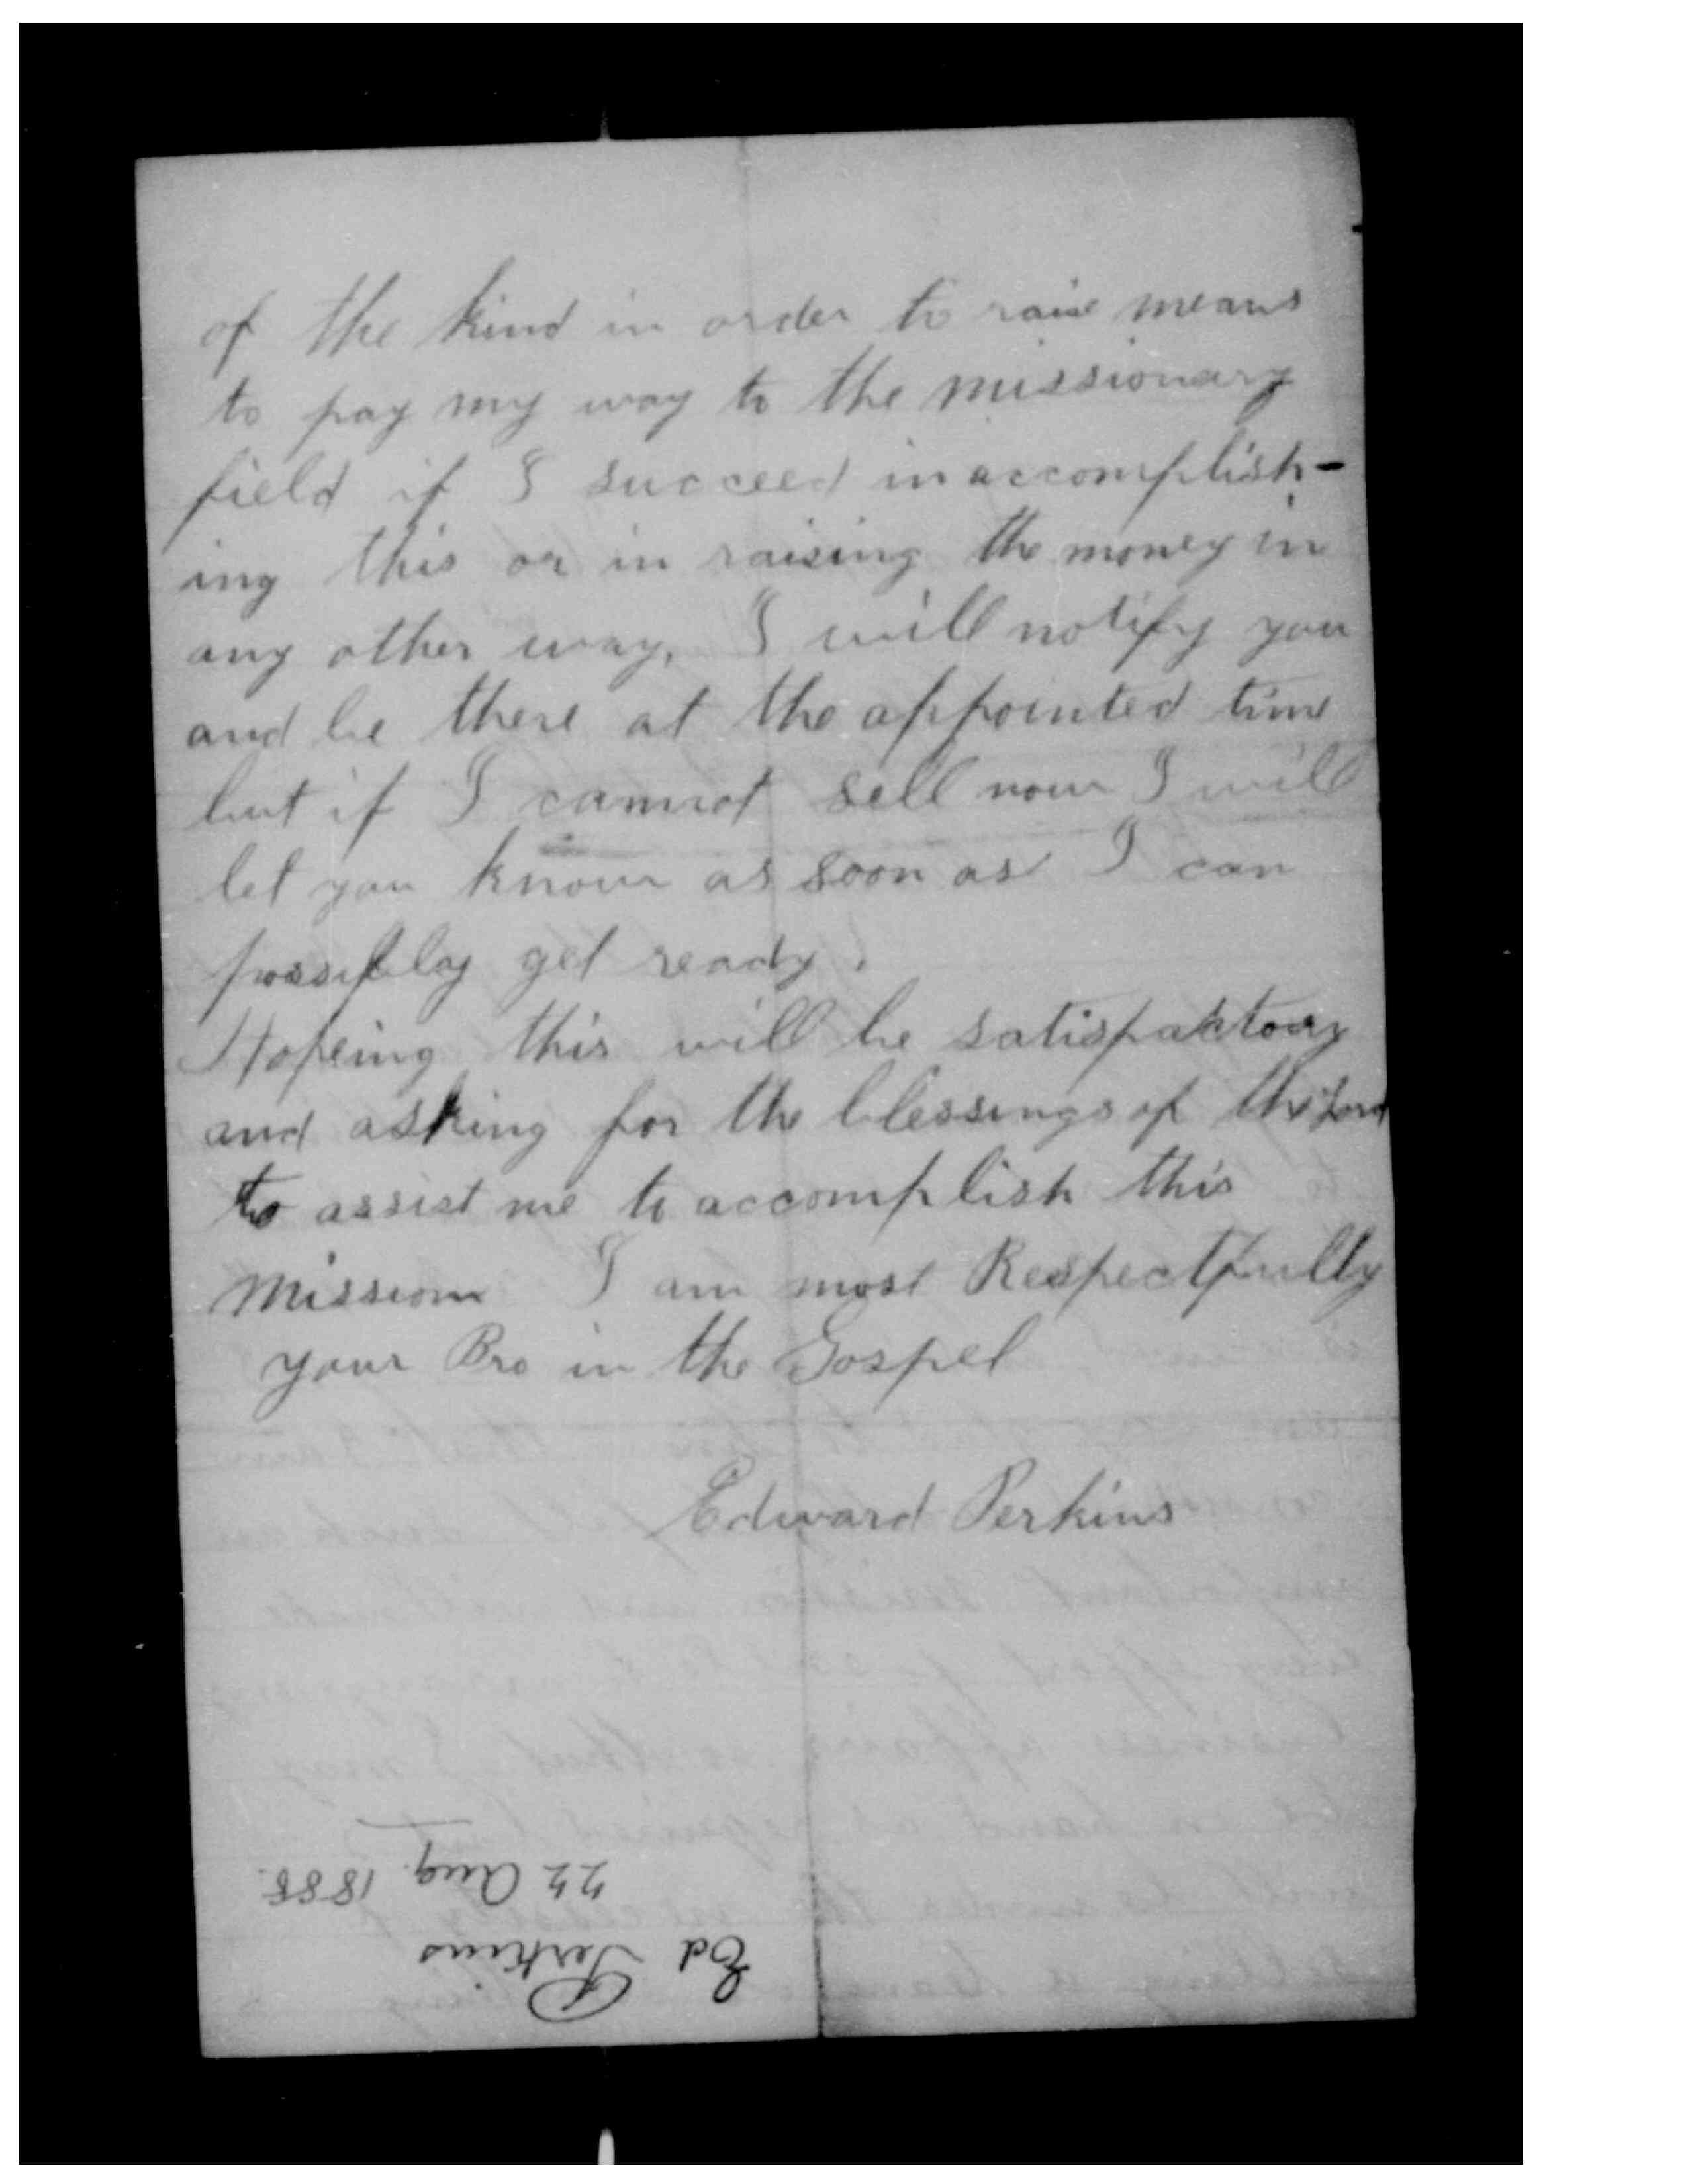 of the kind in order to raise means
to pay my way to the missionary
field if I succeed in accomplish-
ing this or in raising the money in
any other way, I will notify you
and be there at the appointed time
but if I cannot sell now I will
let you know as soon as I can
possibly get ready.
Hopeing this will be satisfaktory
and asking for the blessings of the Lord
to assist me to accomplish this
mission I am most Respectfully
your Bro in the Gospel
Edward Perkins
Ed Perkins
22 Aug. 1888.